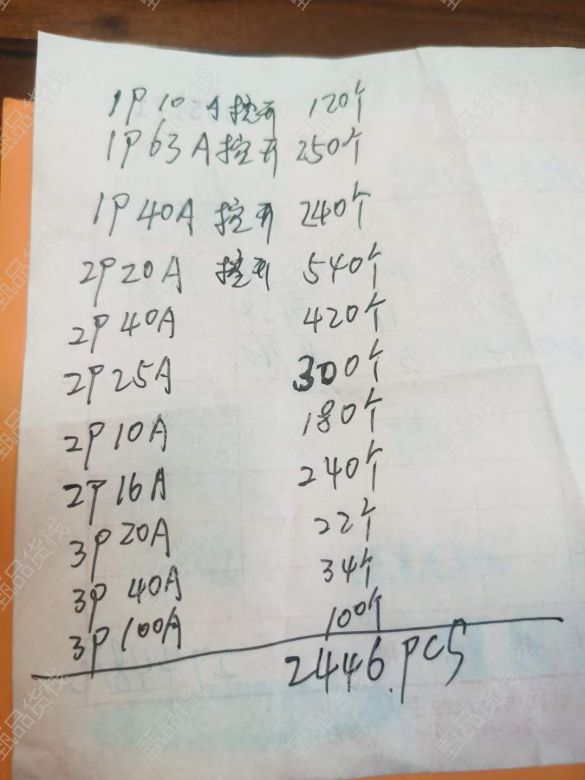 1P 10A 控开 120个
1P 63A 控开 250个
1P 40A 控开 240个
2P 20A 控开 540个
2P 40A 420个
2P 25A 300个
2P 10A 180个
2P 16A 240个
3P 20A 22个
3P 40A 34个
3P 100A 100个
2446.PCS
甄品货栈